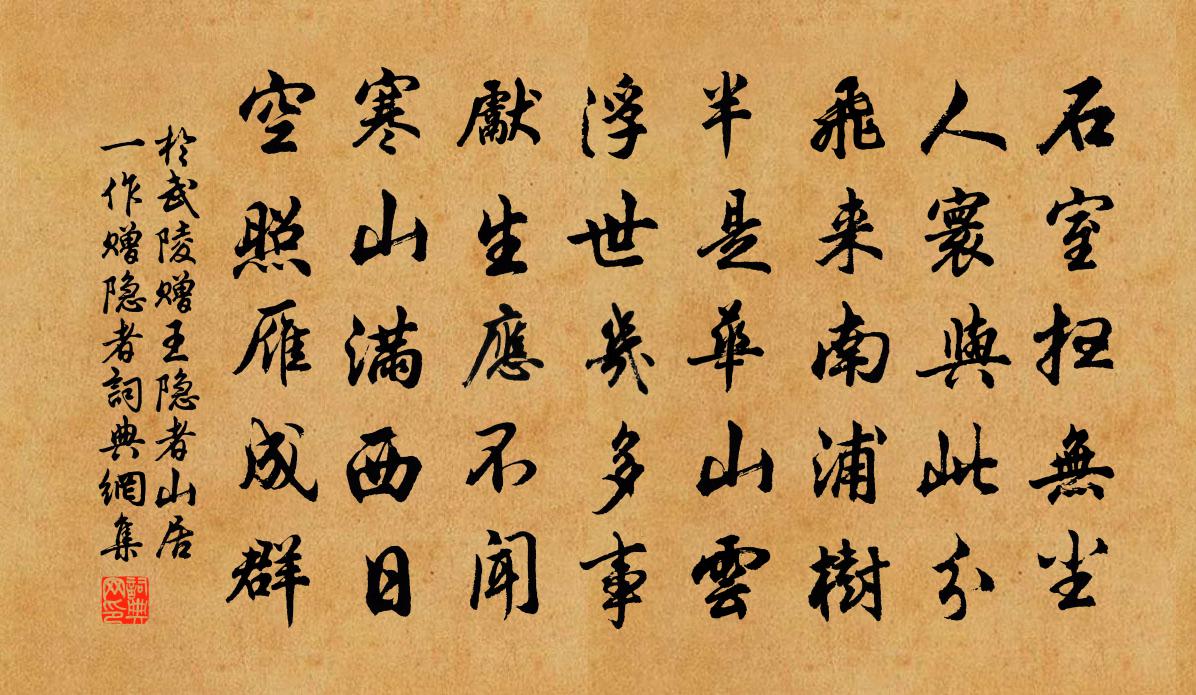 石室扫無尘
人寰與此分
飛来南浦樹
半是華山雲
浮世幾多事
獻生應不闻
寒山满西日
空照雁成群
於武陵赠王隐者山居
一作赠隐者詞典網集
詞典网印